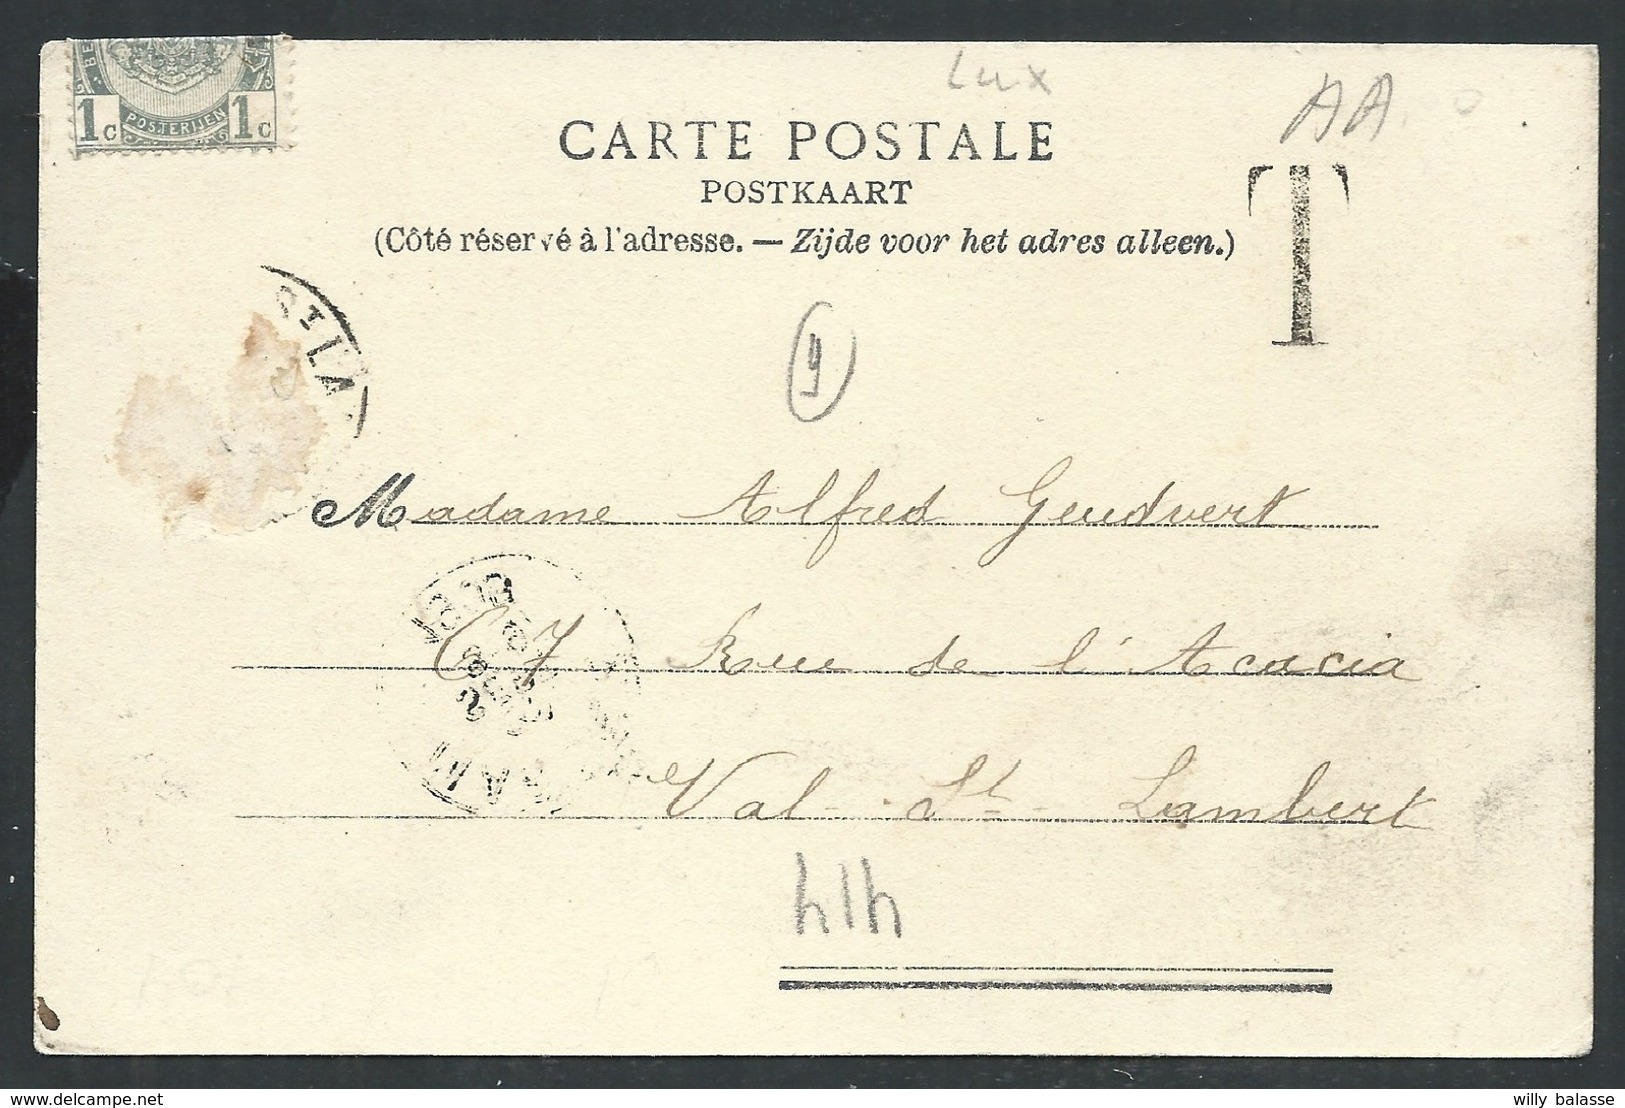 Lux
AA
1 C POSTERIJEN 1 C
CARTE POSTALE
POSTKAART
(Côté réservé à l'adresse. — Zijde voor het adres alleen.)
T
Madame Alfred Gendvert
67 Rue de l'Acacia
Val-St-Lambert
delcampe.net
willy balasse